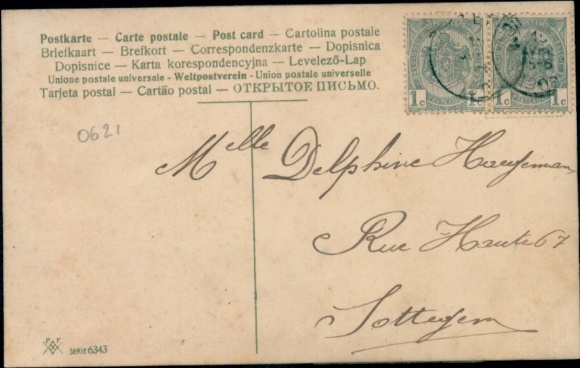 Postkarte — Carte postale — Post card — Cartolina postale
Briefkaart — Brefkort — Correspondenzkarte — Dopisnica
Dopisnice — Karta korespondencyjna — Levelező-Lap
Unione postale universale - Weltpostverein - Union postale universelle
Tarjeta postal — Cartão postal — ОТКРЫТОЕ ПИСЬМО.
1c 1c 1c 1c
0621
Melle Delphine
Rue Haute 67
Sottegem
SERIE 6343